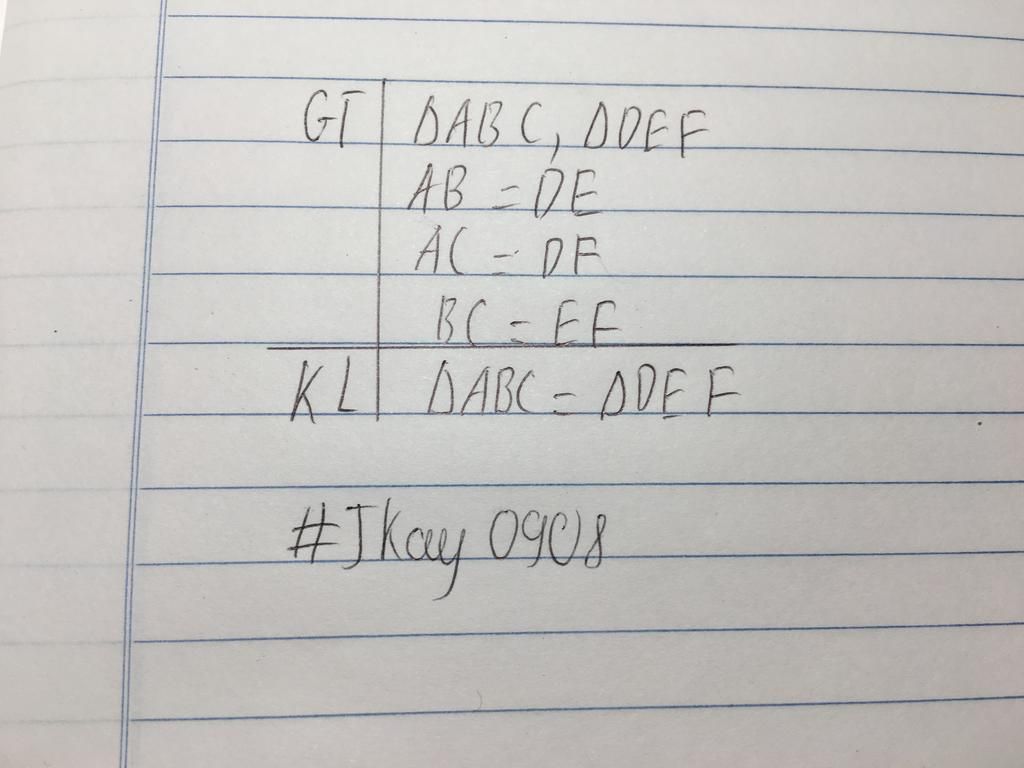 GT | ΔABC, ΔDEF
AB = DE
AC = DF
BC = EF
KL | ΔABC = ΔDEF
#JKay 0908